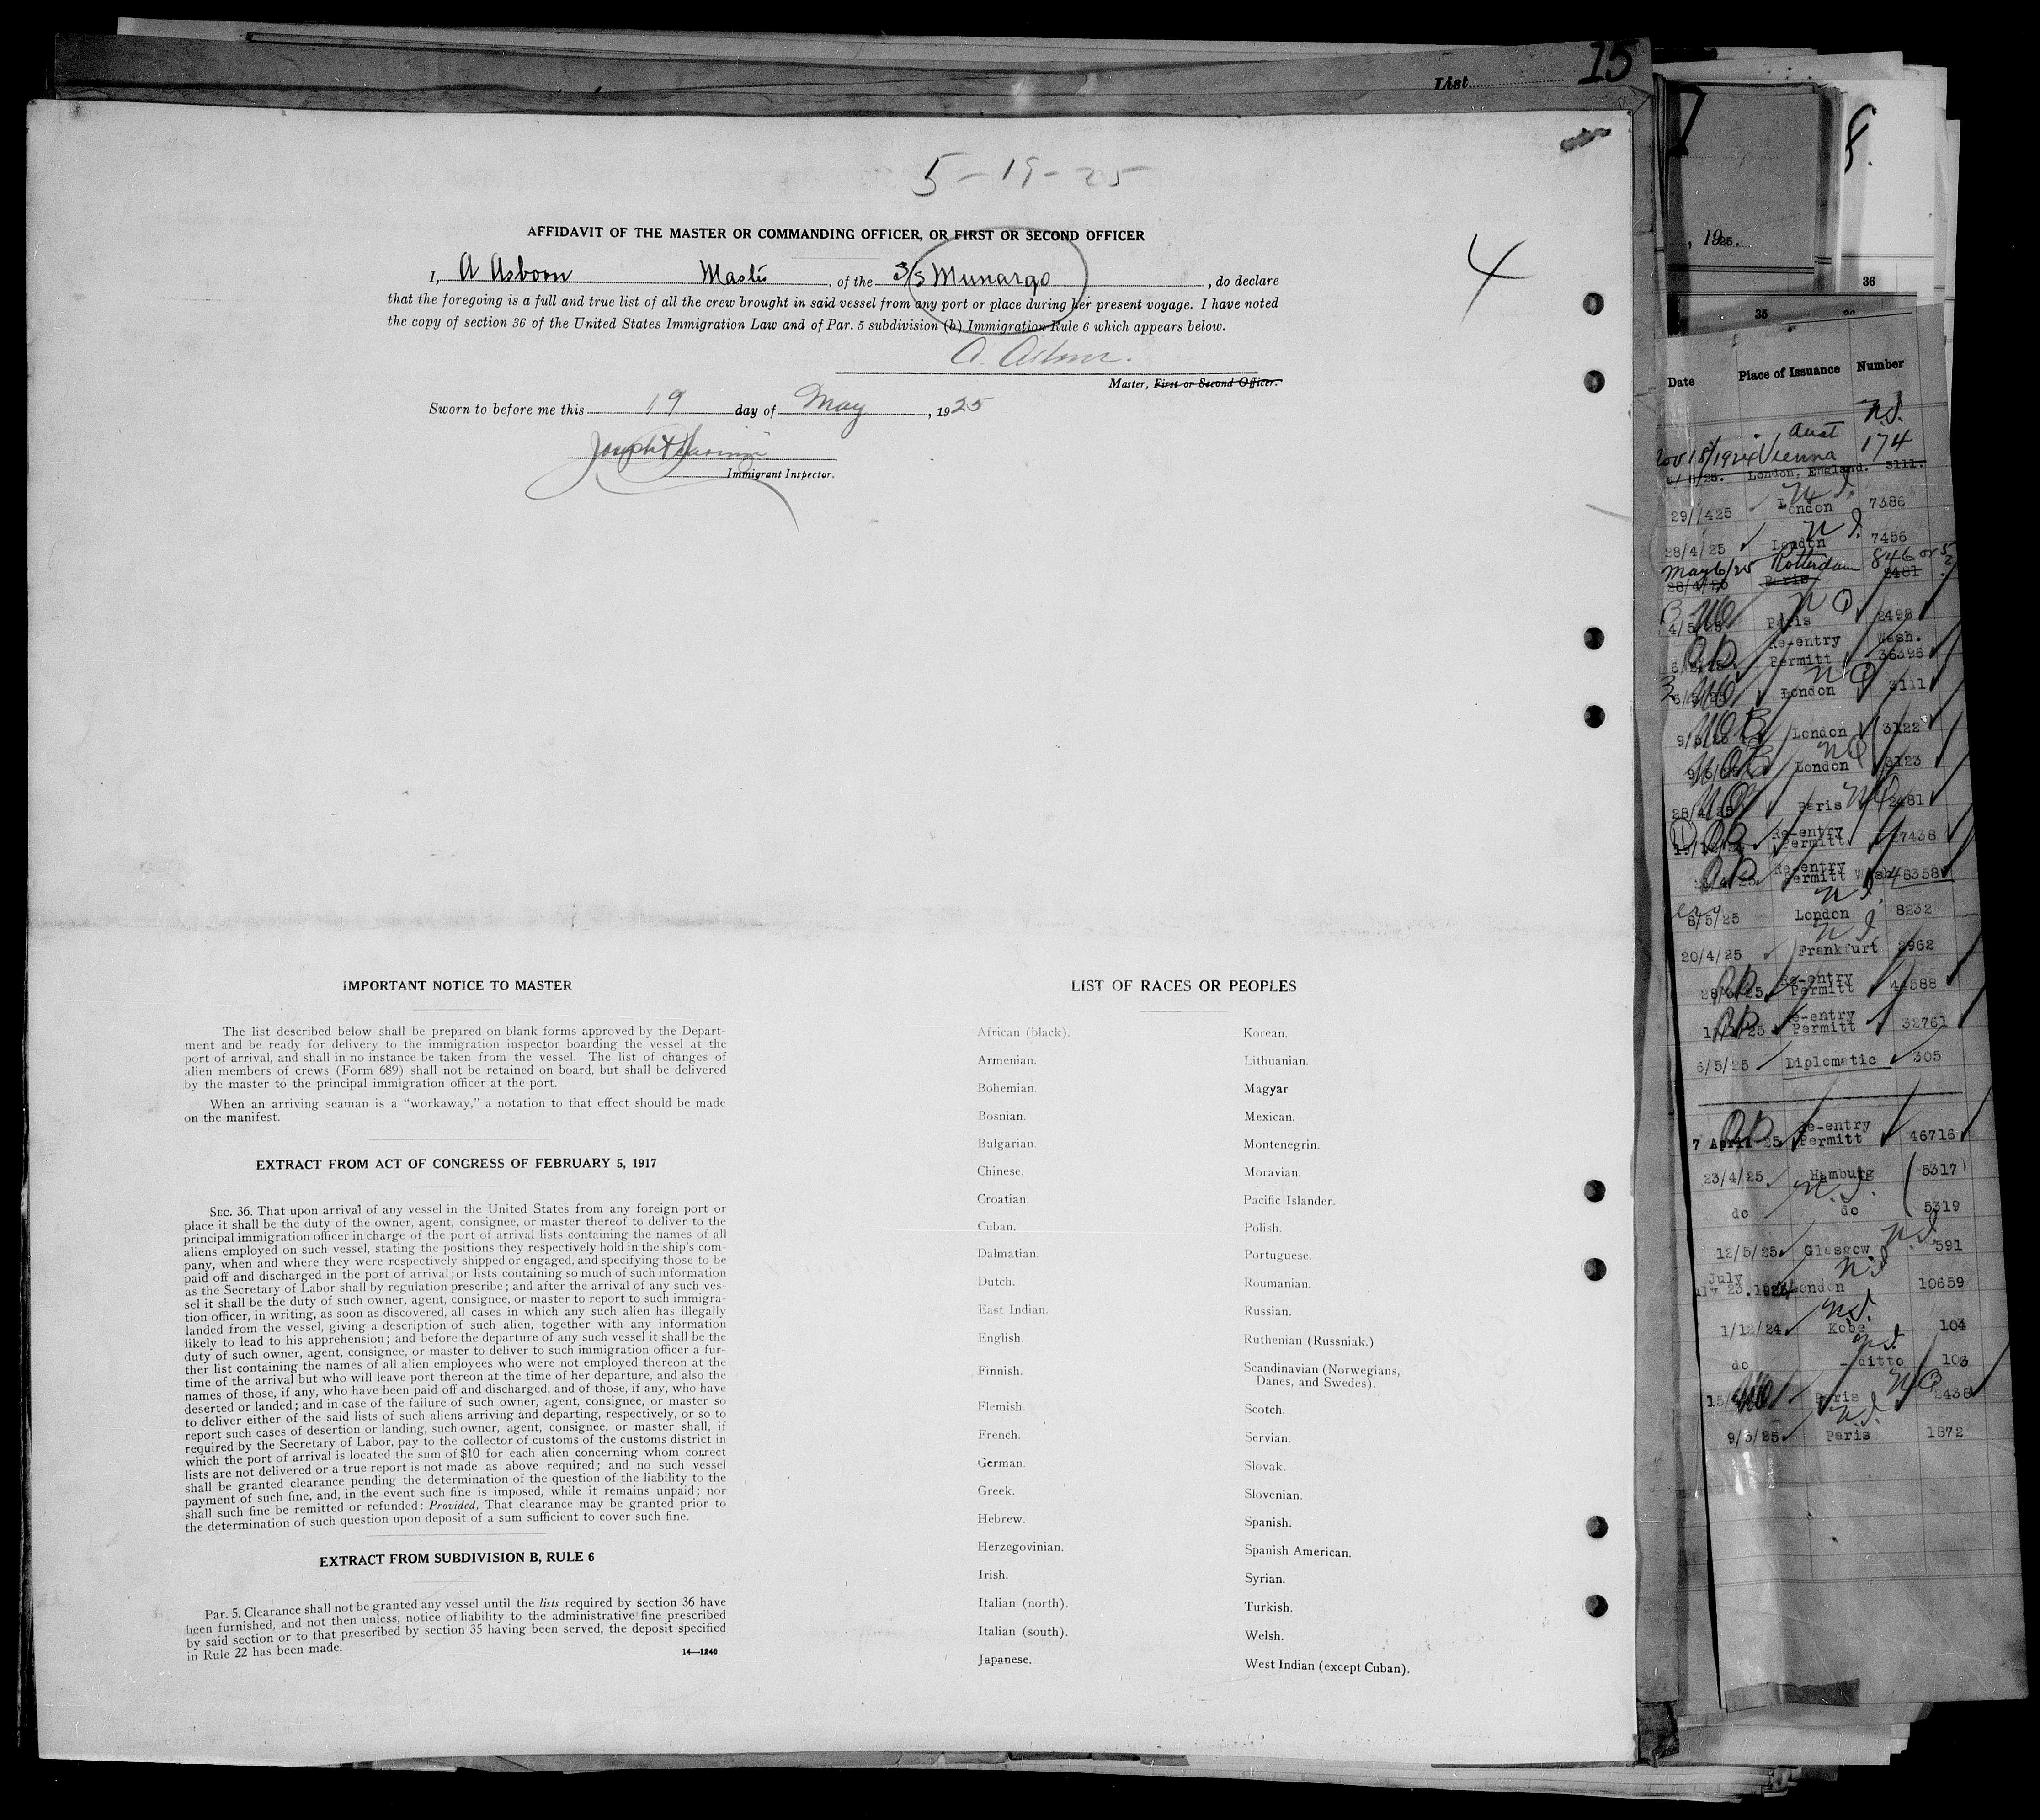 List 15
5-19-25
4
AFFIDAVIT OF THE MASTER OR COMMANDING OFFICER, OR FIRST OR SECOND OFFICER
I, A Asborn Master, of the S/S Munargo, do declare
that the foregoing is a full and true list of all the crew brought in said vessel from any port or place during her present voyage. I have noted
the copy of section 36 of the United States Immigration Law and of Par. 5 subdivision (b) Immigration Rule 6 which appears below.
Master, First or Second Officer.
Sworn to before me this 19 day of May, 1925
Immigrant Inspector.
IMPORTANT NOTICE TO MASTER
The list described below shall be prepared on blank forms approved by the Depart-
ment and be ready for delivery to the immigration inspector boarding the vessel at the
port of arrival, and shall in no instance be taken from the vessel. The list of changes of
alien members of crews (Form 689) shall not be retained on board, but shall be delivered
by the master to the principal immigration officer at the port.
When an arriving seaman is a "workaway," a notation to that effect should be made
on the manifest.
EXTRACT FROM ACT OF CONGRESS OF FEBRUARY 5, 1917
SEC. 36. That upon arrival of any vessel in the United States from any foreign port or
place it shall be the duty of the owner, agent, consignee, or master thereof to deliver to the
principal immigration officer in charge of the port of arrival lists containing the names of all
aliens employed on such vessel, stating the positions they respectively hold in the ship's com-
pany, when and where they were respectively shipped or engaged, and specifying those to be
paid off and discharged in the port of arrival; or lists containing so much of such information
as the Secretary of Labor shall by regulation prescribe; and after the arrival of any such ves-
sel it shall be the duty of such owner, agent, consignee, or master to report to such immigra-
tion officer, in writing, as soon as discovered, all cases in which any such alien has illegally
landed from the vessel, giving a description of such alien, together with any information
likely to lead to his apprehension; and before the departure of any such vessel it shall be the
duty of such owner, agent, consignee, or master to deliver to such immigration officer a fur-
ther list containing the names of all alien employees who were not employed thereon at the
time of the arrival but who will leave port thereon at the time of her departure, and also the
names of those, if any, who have been paid off and discharged, and of those, if any, who have
deserted or landed; and in case of the failure of such owner, agent, consignee, or master so
to deliver either of the said lists of such aliens arriving and departing, respectively, or so to
report such cases of desertion or landing, such owner, agent, consignee, or master shall, if
required by the Secretary of Labor, pay to the collector of customs of the customs district in
which the port of arrival is located the sum of $10 for each alien concerning whom correct
lists are not delivered or a true report is not made as above required; and no such vessel
shall be granted clearance pending the determination of the question of the liability to the
payment of such fine, and, in the event such fine is imposed, while it remains unpaid; nor
shall such fine be remitted or refunded: Provided, That clearance may be granted prior to
the determination of such question upon deposit of a sum sufficient to cover such fine.
EXTRACT FROM SUBDIVISION B, RULE 6
Par. 5. Clearance shall not be granted any vessel until the lists required by section 36 have
been furnished, and not then unless, notice of liability to the administrative fine prescribed
by said section or to that prescribed by section 35 having been served, the deposit specified
in Rule 22 has been made.
14—1240
LIST OF RACES OR PEOPLES
African (black).
Armenian.
Bohemian.
Bosnian.
Bulgarian.
Chinese.
Croatian.
Cuban.
Dalmatian.
Dutch.
East Indian.
English.
Finnish.
Flemish.
French.
German.
Greek.
Hebrew.
Herzegovinian.
Irish.
Italian (north).
Italian (south).
Japanese.
Korean.
Lithuanian.
Magyar
Mexican.
Montenegrin.
Moravian.
Pacific Islander.
Polish.
Portuguese.
Roumanian.
Russian.
Ruthenian (Russniak.)
Scandinavian (Norwegians,
Danes, and Swedes).
Scotch.
Servian.
Slovak.
Slovenian.
Spanish.
Spanish American.
Syrian.
Turkish.
Welsh.
West Indian (except Cuban).
8.
, 1925.
36
35
Date Place of Issuance Number
Vienna 174
London, England. 3111.
London 7386
28/4/25 London 7456
May 6/25 Rotterdam 846
28/4/25 Paris 2481
4/5/25 Paris 2498
Re-entry Wash.
Permitt 36396
London 3111
9/5/25 London 3122
9/5/25 London 3123
28/4/25 Paris 2481
11
Re-entry
Permitt 27438
Re-entry
Permitt Wash 48358
8/5/25 London 8232
20/4/25 Frankfurt 2962
Re-entry
Permitt 44588
Re-entry
Permitt 32761
6/5/25 Diplomatic 305
Re-entry
7 April 25 Permitt 46716
23/4/25 Hamburg 5317
do do 5319
12/5/25 Glasgow 591
July
23.1924 London 10659
1/12/24 Kobe 104
do ditto 103
Paris 2438
9/3/25 Paris 1872